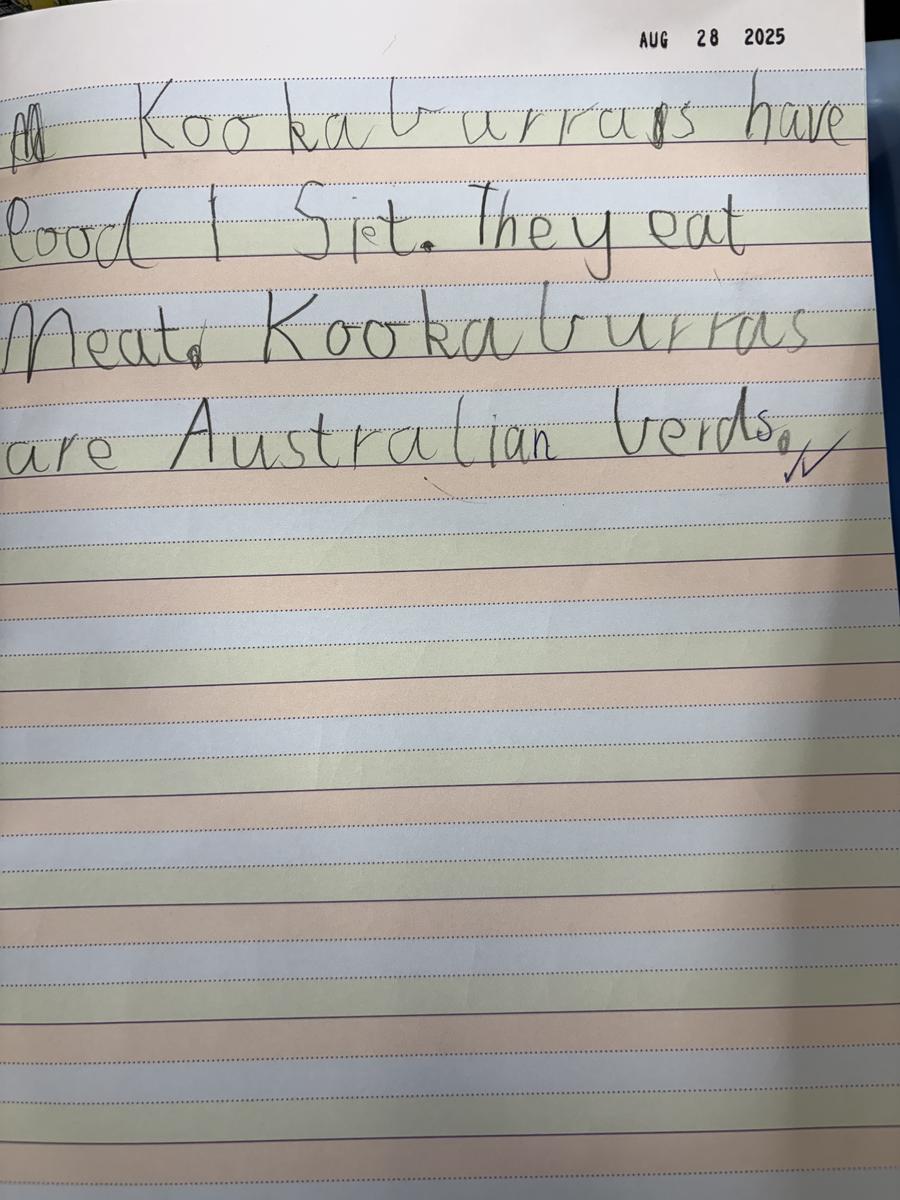 AUG 28 2025
Kookaburras have
lood I Siet. They eat
Meat. Kookaburras
are Australian berds.